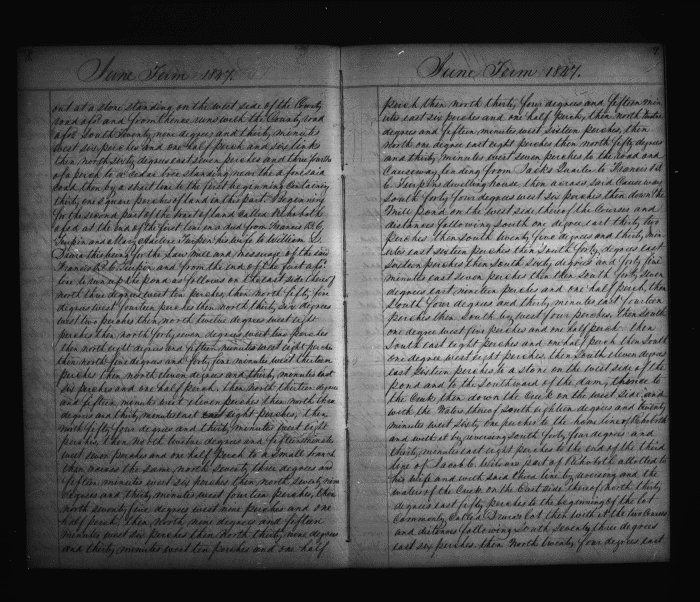 June Term 1847.
out at a stone standing on the west side of the County
road afsd and from thence runs with the County road
afsd South Twenty nine degrees and thirty minutes
west six perches and one half perch and six links
then north sixty degrees east seven perches and three fourths
of a perch to a cedar tree standing near the aforesaid
road then by a short line to the first beginning containing
thirty one square perches of land in this part. Beginning
for the second part of the tract of land Called Rehoboth
afsd at the end of the first line in a deed from Francis B. C.
Turpin and Mary Turpin his wife to William
this being for the Saw mill and messuage of the
Francis B. C. Turpin and from the end of the first afsd
line to run up the pond as follows on the east side thereof
north three degrees west ten perches, then north fifty five
degrees west fourteen perches then north thirty six degrees
west two perches then north twelve degrees west eight
perches then north forty seven degrees west two perches
then north eight degrees and fifteen minutes west eight perches
then north five degrees and forty five minutes west thirteen
perches then north eleven degrees and thirty minutes east
six perches and one half perch, then north thirteen degrees
and fifteen minutes west eleven perches then north three
degrees and thirty minutes east eight perches, then
north fifty four degrees and thirty minutes west eight
perches, then north twelve degrees and fifteen minutes
west seven perches and one half perch to a small branch
then across the same, north seventy three degrees and
fifteen minutes west six perches then north seventy nine
degrees and thirty minutes west fourteen perches, then
north seventy four degrees west nine perches and one
half perch, then north nine degrees and fifteen
minutes west six perches then north thirty nine degrees
and thirty minutes west ten perches and one half
June Term 1847.
perch then north thirty four degrees and fifteen min
utes east six perches and one half perch, then north twelve
degrees and fifteen minutes west sixteen perches, then
north one degree east eight perches then north fifty degrees
and thirty minutes west seven perches to the road and
Causeway leading from Jacks Quarter to Francis B. C.
C. Turpins dwelling house, then across said Causeway
South forty four degrees west six perches then down the
Mill Pond on the West side thereof the Courses and
distances following South one degree east thirty two
perches then South twenty five degrees and thirty min
utes east sixteen perches then South forty degrees east
sixteen perches then South sixty degrees and forty five
minutes east seven perches then then South forty seven
degrees east nineteen perches and one half perch, then
South four degrees and thirty minutes east fourteen
perches then South by west four perches. Then South
one degree west five perches and one half perch then
South east eight perches and one half perch then South
one degree west eight perches, then South eleven degrees
east sixteen perches to a stone on the west side of the
pond and to the Southward of the dam, thence to
the Creek then down the Creek on the west side and
with the Waters thereof South eighteen degrees and twenty
minutes west sixty one perches to the home line of Rehoboth
and with it by reversing South forty four degrees and
thirty minutes east eight perches to the end of the third
line of Jacob C. Wilsons part of Rehoboth allotted to
his wife and with said third line by reversing and the
waters of the Creek on the East side thereof north thirty
degrees east fifty perches to the beginning of the lot
Commonly Called lot then with it the two courses
and distances following South seventy three degrees
east six perches then North twenty four degrees east